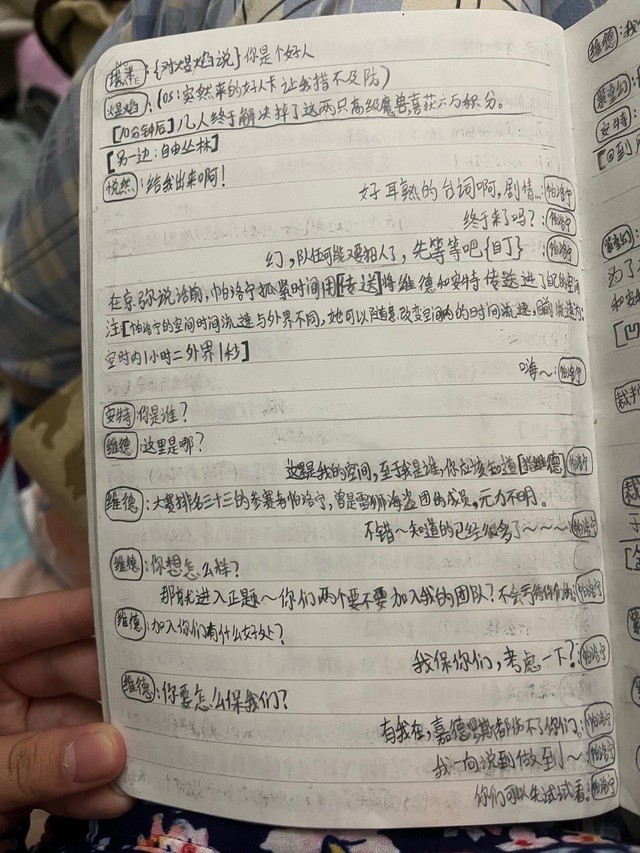 埃米:{对煜焰说}你是个好人
煜焰:(os:突然来的好人卡让我措不及防)
[10分钟后]几人终于解决掉了这两只高级魔兽,喜获六万积分。
[另一边:自由丛林]
悦然:给我出来啊!
好耳熟的台词啊,剧情…:帕洛宁
终于来了吗?:帕洛宁
幻,队伍可能又要招人了,先等等吧{自丁}:帕洛宁
在京弥说话前,帕洛宁抓紧时间用[传送]将维德和安特传送进了自己的空间
注[帕洛宁的空间时间流速与外界不同,她可以随意改变空间内的时间流速,目前流速为:
空时内1小时二外界1秒]
嗨~:帕洛宁
安特:你是谁?
维德:这里是哪?
这里是我的空间,至于我是谁,你应该知道[指维德]:帕洛宁
维德:大赛排名三十三的参赛者帕洛宁,曾是雷狮海盗团的成员,元力不明。
不错~知道的已经很多了~~~~:帕洛宁
维德:你想怎么样?
那就进入正题~你们两个要不要加入我的团队?不会亏待你们的:帕洛宁
维德:加入你们有什么好处?
我保你们,考虑一下?:帕洛宁
维德:你要怎么保我们?
有我在,嘉德罗斯都伤不了你们。:帕洛宁
我一向说到做到~:帕洛宁
你们可以先试试看。:帕洛宁
维德:我
紫堂幻:
安特:
[回到
紫堂幻:
为了
和
[凹
裁判
裁